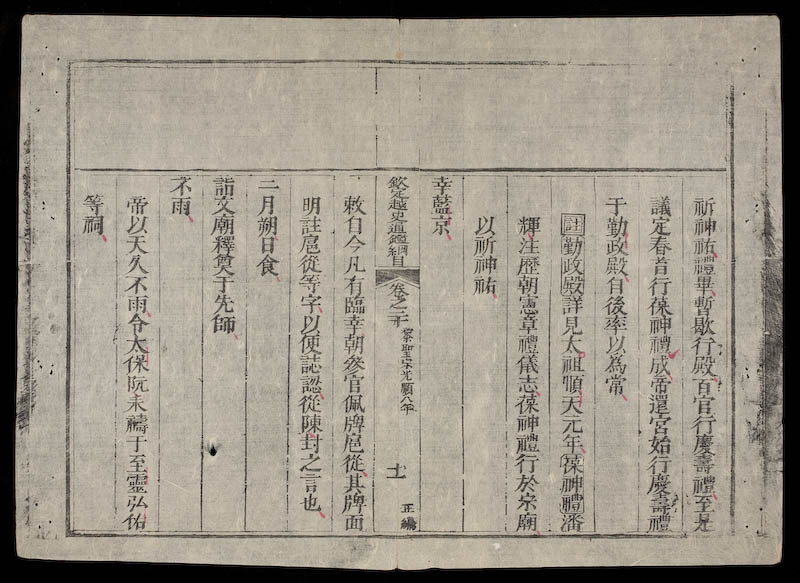 祈神祐禮畢暫歇行殿百官行慶壽禮至是
議定春首行葆神禮成帝還宮始行慶壽禮
于勤政殿自後率以為常
註勤政殿詳見太祖順天元年葆神禮潘
輝注歷朝憲章禮儀志葆神禮行於宗廟
以祈神祐
幸藍京
欽定越史通鑑綱目 卷之二十 黎聖宗光順八年 十一 正編
敕自今凡有臨幸朝參官佩牌扈從其牌面
明註扈從等字以便誌認從陳封之言也
二月朔日食
詣文廟釋奠于先師
不雨
帝以天久不雨令太保阮耒禱于至靈弘佑
等祠